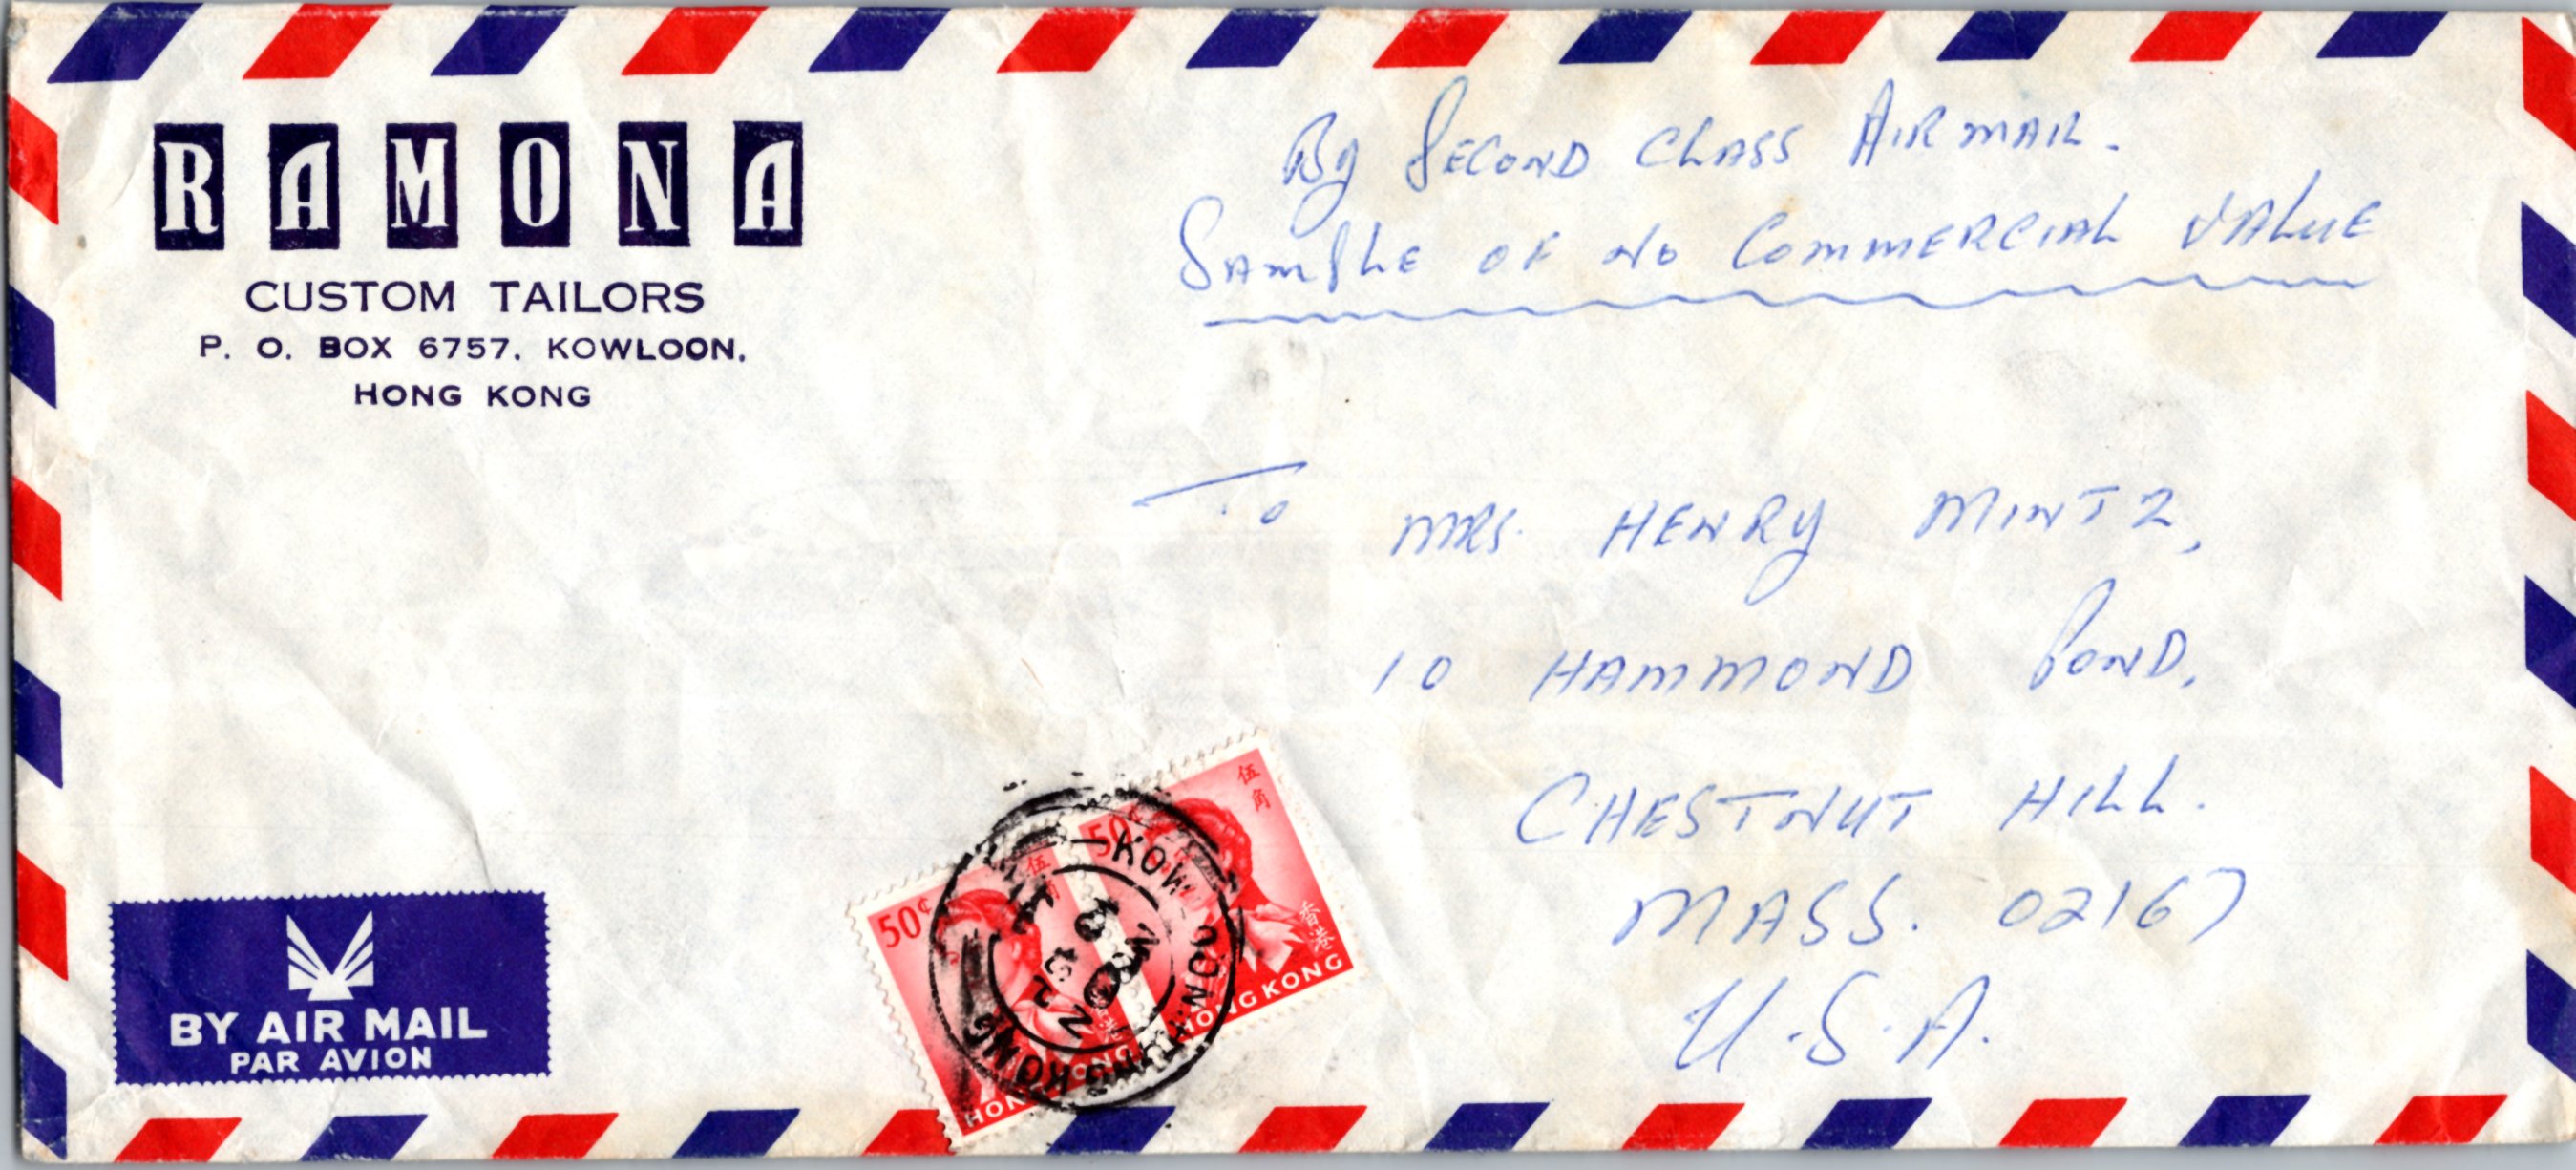 RAMONA
CUSTOM TAILORS
P. O. BOX 6757, KOWLOON,
HONG KONG
By Second Class Airmail.
Sample of no Commercial Value
To
MRS. HENRY MINTZ,
10 HAMMOND POND,
CHESTNUT HILL.
MASS. 02167
U.S.A.
50¢
伍角
香港
HONG KONG
50
伍角
HONG KONG
KOWLOON
HONG KONG
BY AIR MAIL
PAR AVION